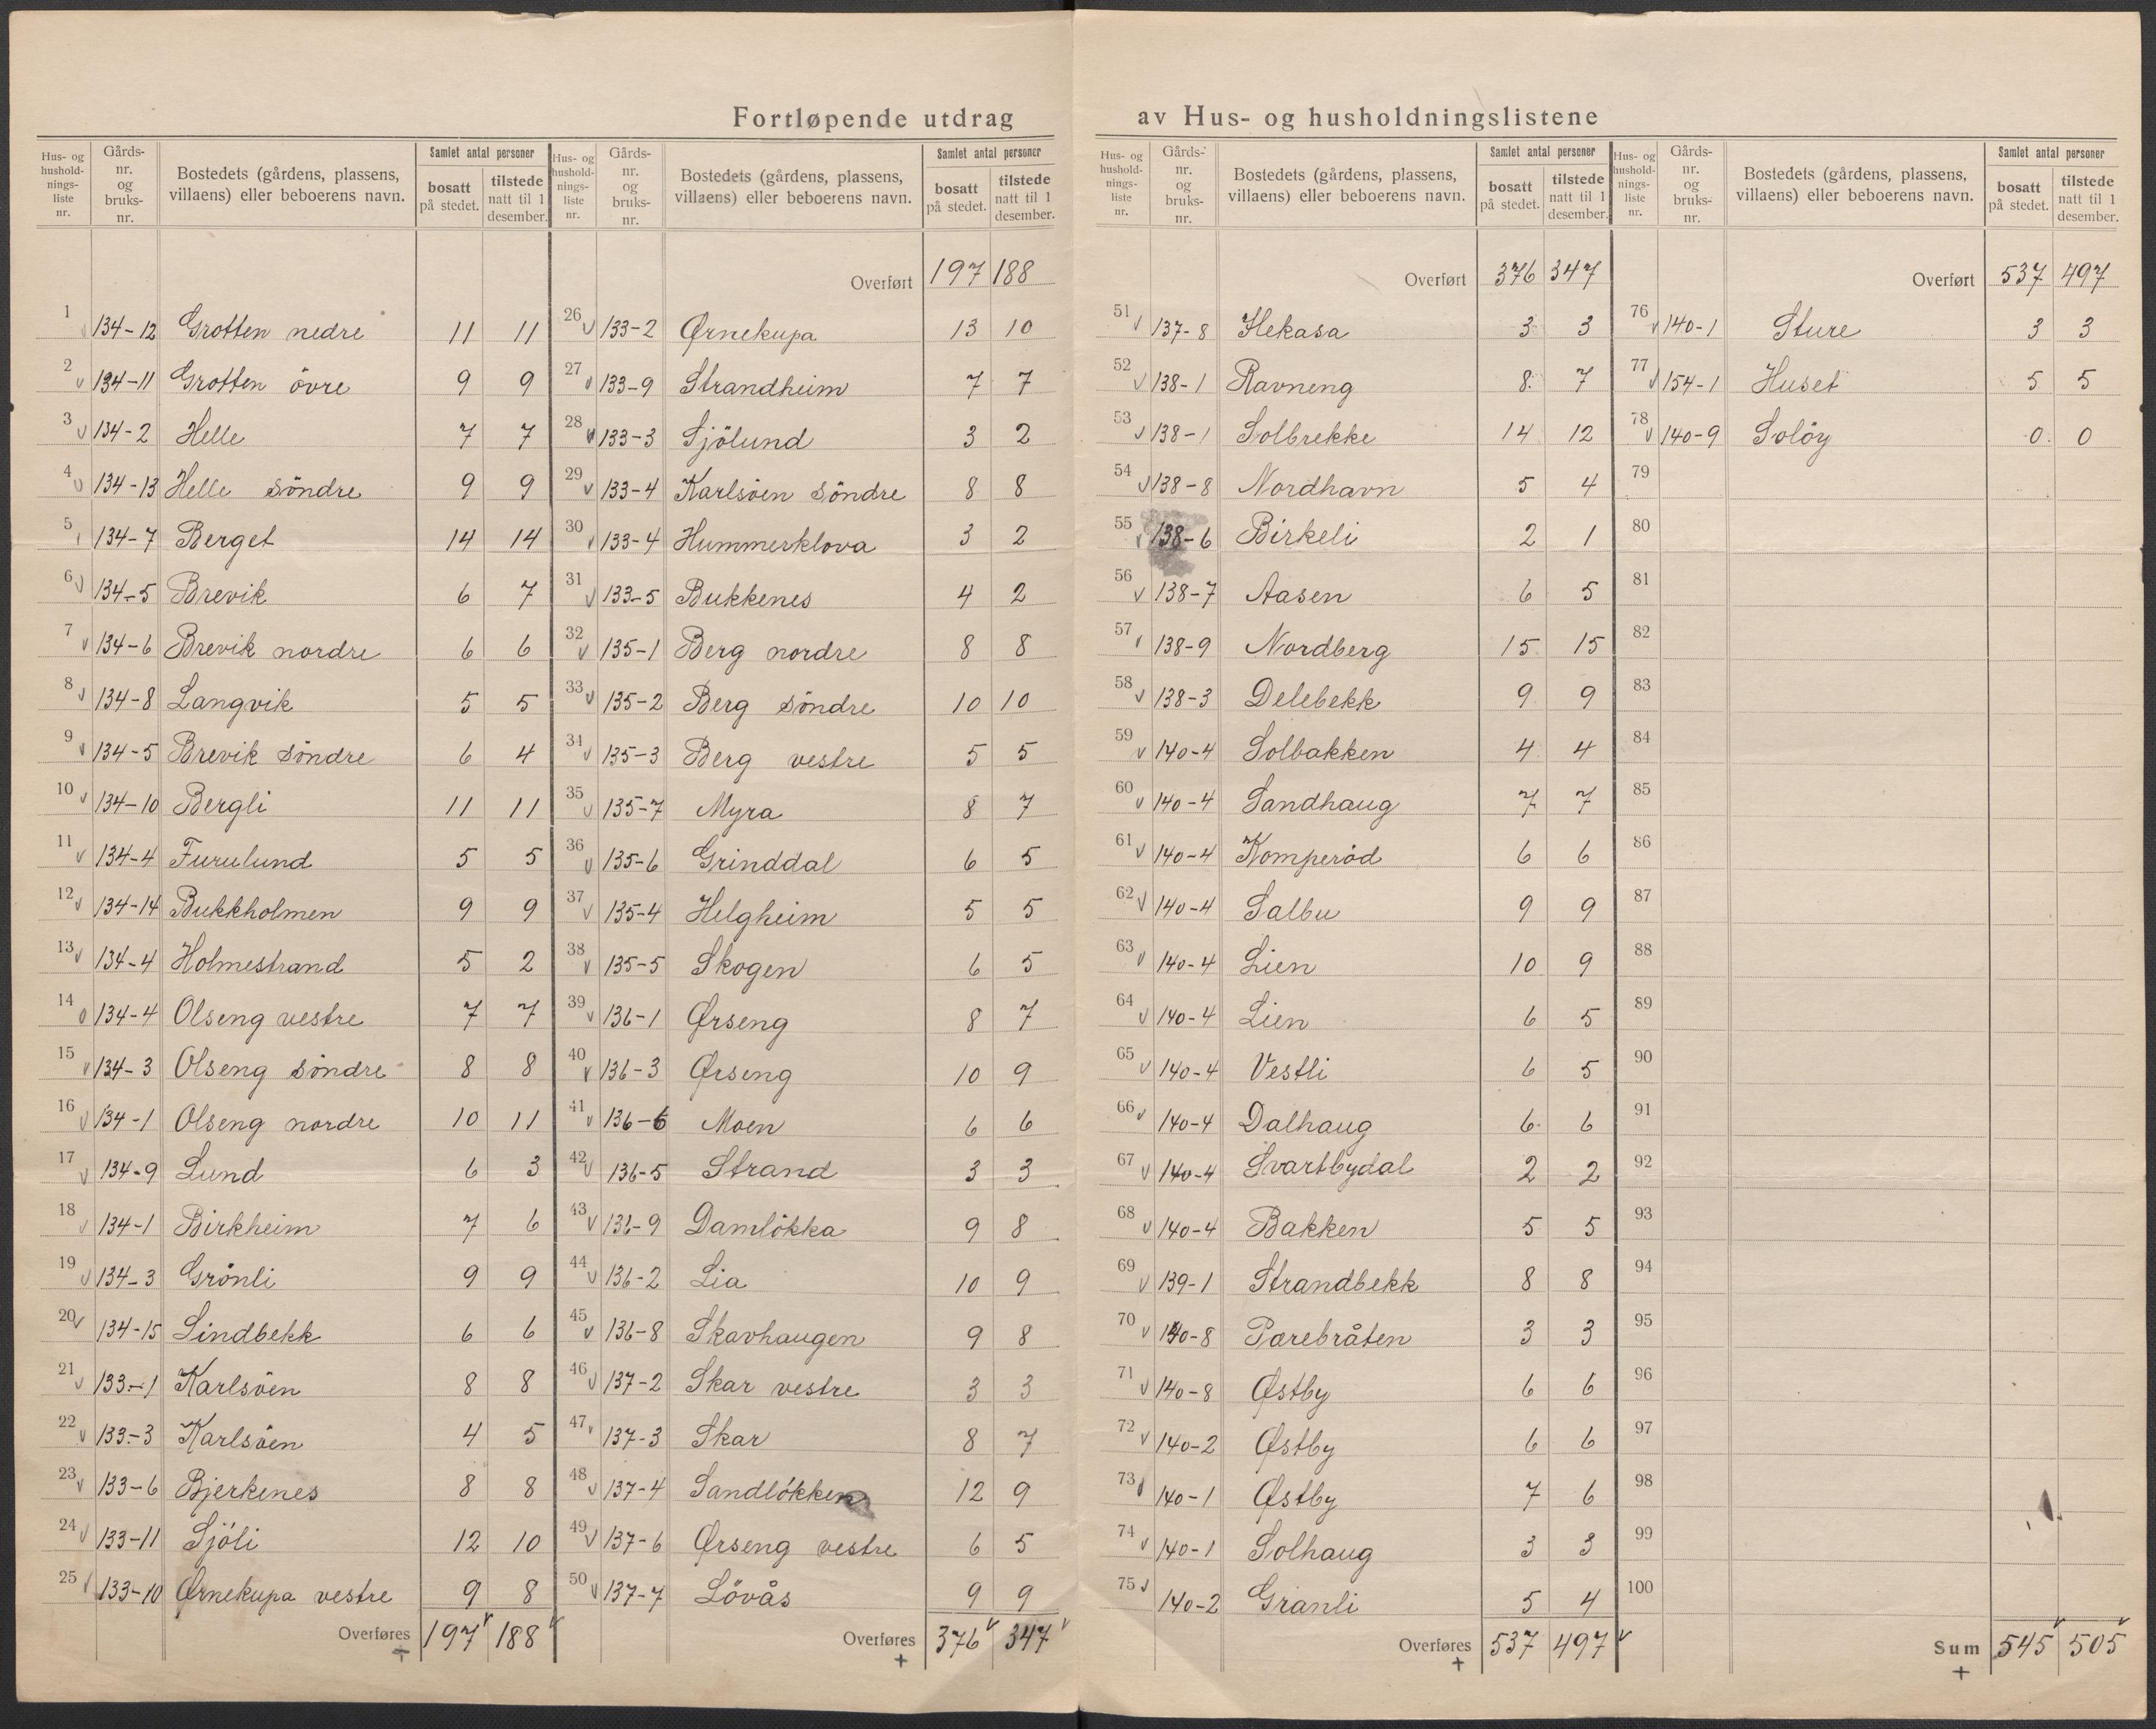 Fortløpende utdrag av Hus- og husholdningslistene
Hus- og husholdnings-liste nr. | Gårds-nr. og bruks-nr. | Bostedets (gårdens, plassens, villaens) eller beboerens navn. | Samlet antal personer | bosatt på stedet. | tilstede natt til 1 desember.
1 134-12 Grotten nedre 11 11
2 134-11 Grotten övre 9 9
3 134-2 Helle 7 7
4 134-13 Helle söndre 9 9
5 134-7 Berget 14 14
6 134-5 Brevik 6 7
7 134-6 Brevik nordre 6 6
8 134-8 Langvik 5 5
9 134-5 Brevik söndre 6 4
10 134-10 Bergli 11 11
11 134-4 Furulund 5 5
12 134-14 Bukkholmen 9 9
13 134-4 Holmestrand 5 2
14 134-4 Olseng vestre 7 7
15 134-3 Olseng söndre 8 8
16 134-1 Olseng nordre 10 11
17 134-9 Lund 6 3
18 134-1 Birkheim 7 6
19 134-3 Grönli 9 9
20 134-15 Lindbekk 6 6
21 133-1 Karlsöen 8 8
22 133-3 Karlsöen 4 5
23 133-6 Bjerkenes 8 8
24 133-11 Sjöli 12 10
25 133-10 Ørnekupa vestre 9 8
Overføres 197 188
+
Hus- og husholdnings-liste nr. | Gårds-nr. og bruks-nr. | Bostedets (gårdens, plassens, villaens) eller beboerens navn. | Samlet antal personer | bosatt på stedet. | tilstede natt til 1 desember.
Overført 197 188
26 133-2 Ørnekupa 13 10
27 133-9 Strandheim 7 7
28 133-3 Sjölund 3 2
29 133-4 Karlsöen söndre 8 8
30 133-4 Hummerklova 3 2
31 133-5 Bukkenes 4 2
32 135-1 Berg nordre 8 8
33 135-2 Berg söndre 10 10
34 135-3 Berg vestre 5 5
35 135-7 Myra 8 7
36 135-6 Grinddal 6 5
37 135-4 Helgheim 5 5
38 135-5 Skogen 6 5
39 136-1 Ørseng 8 7
40 136-3 Ørseng 10 9
41 136-6 Moen 6 6
42 136-5 Strand 3 3
43 136-9 Damlökka 9 8
44 136-2 Lia 10 9
45 136-8 Skavhaugen 9 8
46 137-2 Skar vestre 3 3
47 137-3 Skar 8 7
48 137-4 Sandlökken 12 9
49 137-6 Ørseng vestre 6 5
50 137-7 Lövås 9 9
Overføres 376 347
+
Hus- og husholdnings-liste nr. | Gårds-nr. og bruks-nr. | Bostedets (gårdens, plassens, villaens) eller beboerens navn. | Samlet antal personer | bosatt på stedet. | tilstede natt til 1 desember.
Overført 376 347
51 137-8 Hekasa 3 3
52 138-1 Ravneng 8 7
53 138-1 Solbrekke 14 12
54 138-8 Nordhavn 5 4
55 138-6 Birkeli 2 1
56 138-7 Aasen 6 5
57 138-9 Nordberg 15 15
58 138-3 Delebekk 9 9
59 140-4 Solbakken 4 4
60 140-4 Sandhaug 7 7
61 140-4 Komperöd 6 6
62 140-4 Salbu 9 9
63 140-4 Lien 10 9
64 140-4 Lien 6 5
65 140-4 Vestli 6 5
66 140-4 Dalhaug 6 6
67 140-4 Svartbydal 2 2
68 140-4 Bakken 5 5
69 139-1 Strandbekk 8 8
70 140-8 Parebråten 3 3
71 140-8 Østby 6 6
72 140-2 Østby 6 6
73 140-1 Østby 7 6
74 140-1 Solhaug 3 3
75 140-2 Granli 5 4
Overføres 537 497
+
Hus- og husholdnings-liste nr. | Gårds-nr. og bruks-nr. | Bostedets (gårdens, plassens, villaens) eller beboerens navn. | Samlet antal personer | bosatt på stedet. | tilstede natt til 1 desember.
Overført 537 497
76 140-1 Sture 3 3
77 154-1 Huset 5 5
78 140-9 Solöy 0 0
79
80
81
82
83
84
85
86
87
88
89
90
91
92
93
94
95
96
97
98
99
100
Sum 545 505
+